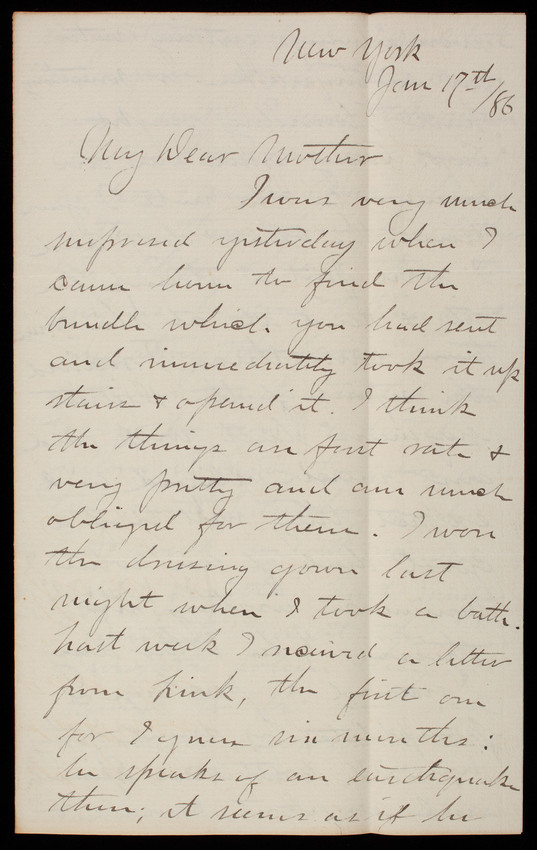 New York
Jan 17th/86
My Dear Mother
I was very much
suprised yesterday when I
came home to find the
bundle which you had sent
and immediately took it up
stairs & opened it. I think
the things are first rate &
very pretty and am much
obliged for them. I wore
the dressing gown last
night when I took a bath.
Last week I received a letter
from Link, the first one
for I guess six months:
he speaks of an earthquake
there; it seems as if he